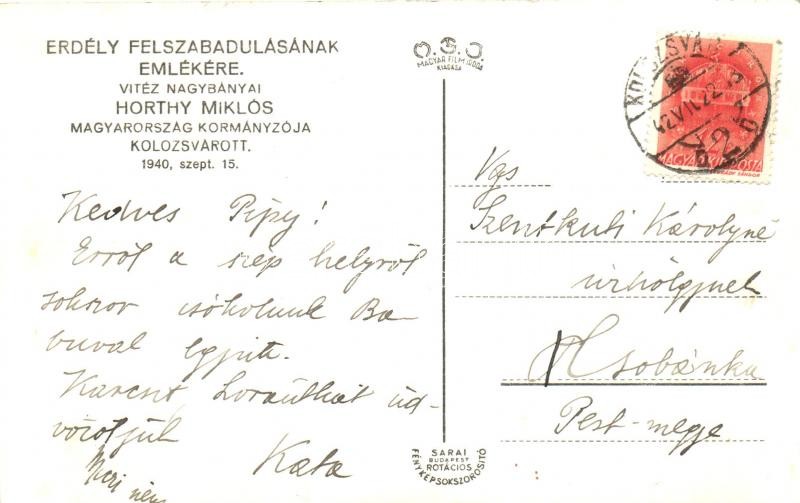 ERDÉLY FELSZABADULÁSÁNAK
EMLÉKÉRE.
VITÉZ NAGYBÁNYAI
HORTHY MIKLÓS
MAGYARORSZÁG KORMÁNYZÓJA
KOLOZSVÁROTT.
1940, szept. 15.
Kedves Pipy!
Erről a szép helyről
sokszor csókolunk Ba-
buval együtt.
Karcsit, Lorándkát üd-
vözöljük
Kata
Mari néni
M.F.I.
MAGYAR FILM IRODA
KIADÁSA
SARAI
BUDAPEST
ROTÁCIÓS
FÉNYKÉPSOKSZOROSÍTÓ
KOLOZSVÁR
42.VII.22
12
MAGYAR KIR. POSTA
Vgs
Szentkuti Károlyné
úrhölgynek
Csobánka
Pest-megye